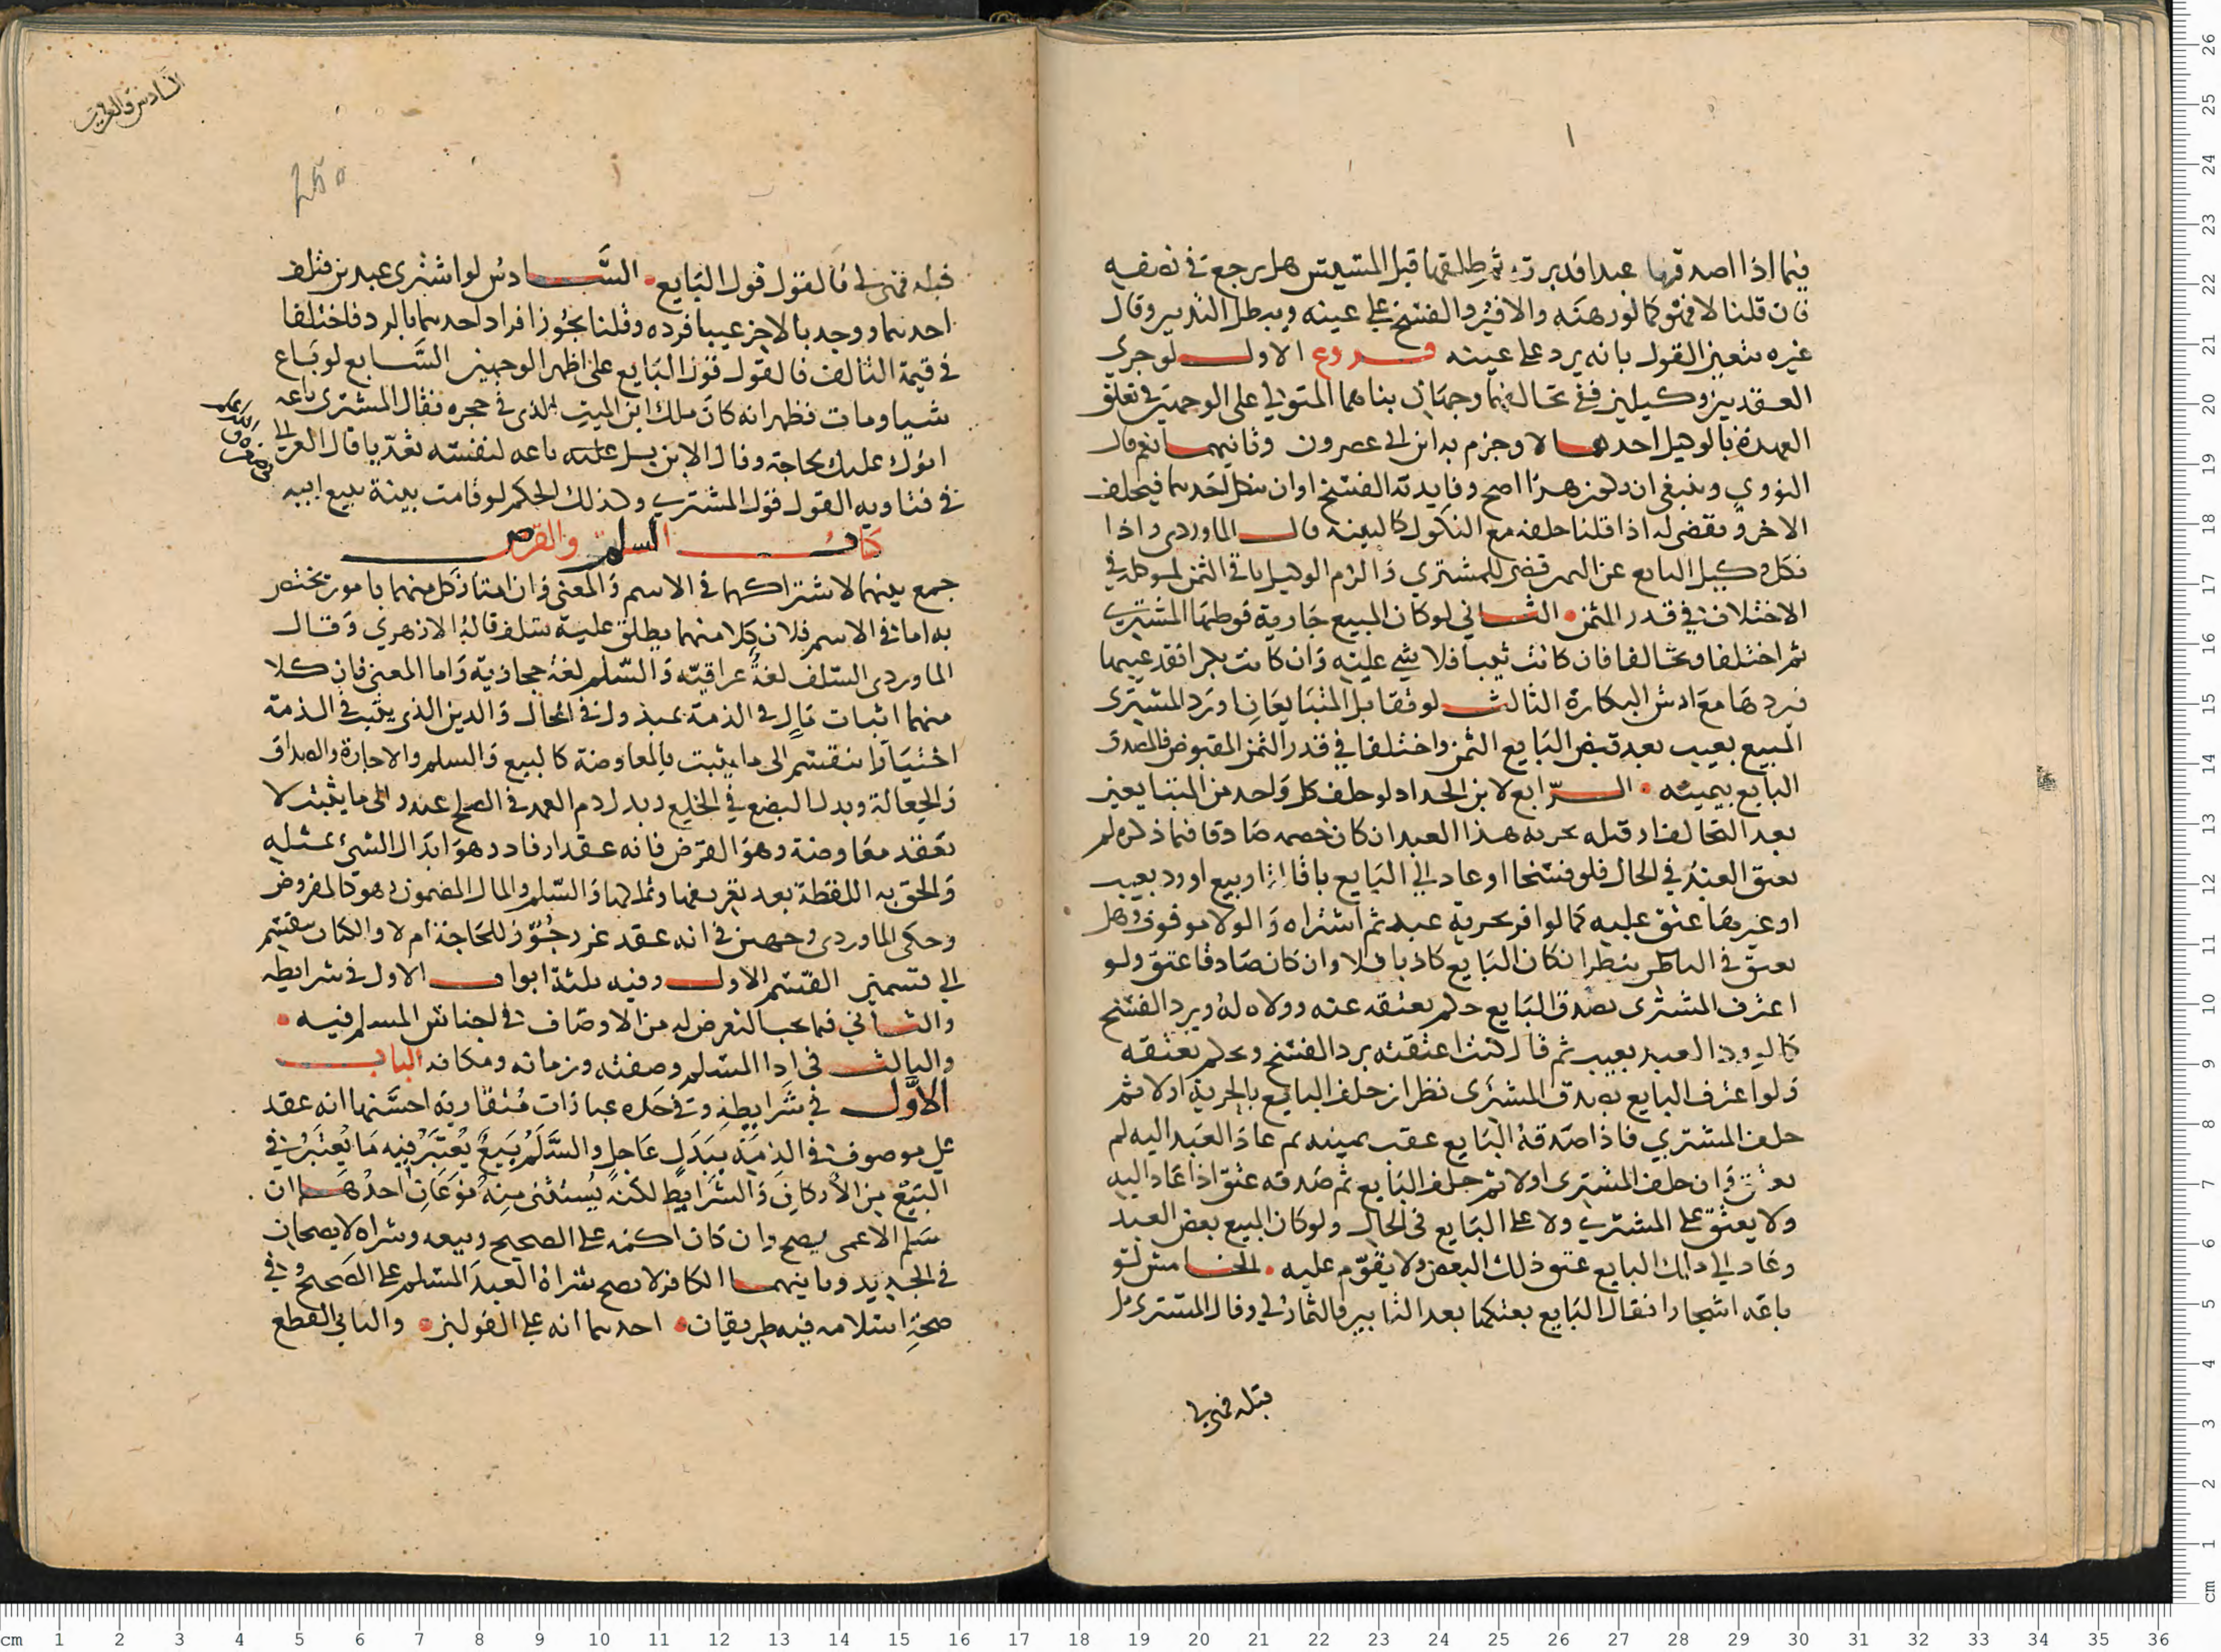 فيما اذا اصدقها عبدا فدبرته ثم طلقها قبل المسيس هل يرجع في نصفه
فان قلنا لا فهو كما لو رهنه والا فيرد الفسخ على عينه ويبطل التدبير وقال
غيره يتعين القول بانه يرد على عينه فروع الاول لو جرى
العقد بين وكيلين ففي تحالفهما وجهان بناهما المتولي على الوجهين في تعلق
العهدة بالوكيل احدهما لا وجزم به ابن ابي عصرون وثانيهما نعم قال
النووي وينبغي ان يكون هذا اصح وفايدته الفسخ او ان ينكل احدهما فيحلف
الاخر ويقضى له اذا قلنا حلفه مع النكول كالبينه قال الماوردي واذا
نكل وكيل البايع عن اليمين قضى للمشتري والزم الوكيل باقي الثمن لموكله في
الاختلاف في قدر الثمن الثاني لو كان المبيع جارية فوطيها المشتري
ثم اختلفا وتحالفا فان كانت ثيبا فلا شي عليه وان كانت بكرا فقد عيبها
فيردها مع ارش البكارة الثالث لو تقايل المتبايعان او رد المشتري
المبيع بعيب بعد قبض البايع الثمن واختلفا في قدر الثمن المقبوض فالمصدق
البايع بيمينه الرابع لابن الحداد لو حلف كل واحد من المتبايعين
بعد التحالف او قبله بحرية هذا العبد ان كان خصمه صادقا فيما ذكره لم
يعتق العبد في الحال فلو فسخا او عاد الى البايع باقالة او بيع او رد بعيب
او غيرها عتق عليه كما لو اقر بحرية عبد ثم اشتراه والولا موقوف وهل
يعتق في الباطن ينظر ان كان البايع كاذبا فلا وان كان صادقا عتق ولو
اعترف المشترى بصدق البايع حكم بعتقه عنه وولاه له ويرد الفسخ
كما لو رد العبد بعيب ثم قال كنت اعتقته يرد الفسخ ويحكم بعتقه
ولو اعترف البايع بصدق المشترى نظر ان حلف البايع بالحرية اولا ثم
حلف المشتري فاذا صدقه البايع عقب يمينه ثم عاد العبد اليه لم
يعتق وان حلف المشترى اولا ثم حلف البايع ثم صدقه عتق اذا عاد اليه
ولا يعتق على المشتري ولا على البايع في الحال ولو كان المبيع بعض العبد
وعاد الى ملك البايع عتق ذلك البعض ولا يقوم عليه الخامس لو
باعه اشجارا فقال البايع بعتكها بعد التابير فالثمار لي وقال المشترى بل
قبله فهي لي
السادس والعشرين
250
قبله فهي لي فالقول قول البايع السادس لو اشترى عبدين فتلف
احدهما ووجد بالاخر عيبا فرده وقلنا بجواز افراد احدهما بالرد فاختلفا
في قيمة التالف فالقول قول البايع على اظهر الوجهين السابع لو باع
شيا ومات فظهر انه كان ملك ابن الميت الذي في حجره فقال المشترى باعه
ابوك عليك لحاجة وقال الابن بل عليه باعه لنفسه تعديا قال الغزالي
في فتاويه القول قول المشتري وكذلك الحكم لو قامت بينة ببيع ابيه
كتاب السلم والقرض
جمع بينهما لاشتراكهما في الاسم والمعنى وان امتاز كل منهما بامور تختص
به اما في الاسم فلان كلا منهما يطلق عليه سلف قاله الازهري وقال
الماوردي السلف لغة عراقية والسلم لغة حجازية واما المعنى فان كلا
منهما اثبات مال في الذمة بمبذول في الحال والدين الذي يثبت في الذمة
اختيارا ينقسم الى ما يثبت بالمعاوضة كالبيع والسلم والاجارة والصداق
والجعالة وبدل البضع في الخلع وبدل دم العمد في الصلح عنه والى ما يثبت لا
بعقد معاوضة وهو القرض فانه عقد ارفاد وهو ابدال الشي بمثله
والحق به اللقطة بعد تعريفها وتملكها والسلم والمال المضمون وهو كالمفروض
وحكى الماوردي وجهين في انه عقد غرر جوز للحاجة ام لا والكتاب ينقسم
الى قسمين القسم الاول وفيه ثلثة ابواب الاول في شرايطه
والثاني فيما يجب التعرض له من الاوصاف في اجناس المسلم فيه
والثالث في ادا المسلم وصفته وزمانه ومكانه الباب
الاول في شرايطه وفي حده عبارات متقاربة احسنها انه عقد
على موصوف في الذمة ببدل عاجل والسلم بيع يعتبر فيه ما يعتبر في
البيع من الاركان والشرايط لكنه يستثنى منه نوعان احدهما ان
سلم الاعمى يصح وان كان اكمه على الصحيح وبيعه وشراه لا يصحان
في الجديد وثانيهما الكافر لا يصح شراه العبد المسلم على الصحيح وفي
صحة اسلامه فيه طريقان احدهما انه على القولين والثاني القطع